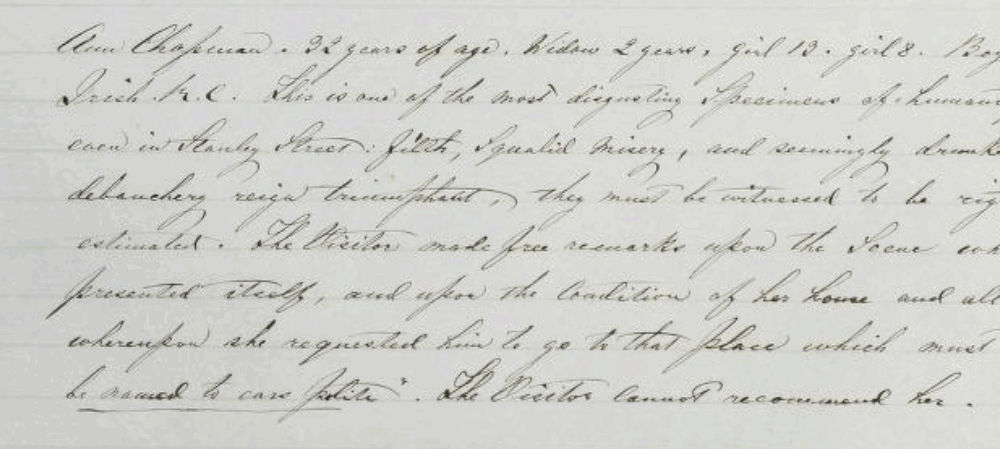 Ann Chapman. 32 years of age. Widow 2 years, girl 13. girl 8. Boy
Irish R.C. This is one of the most disgusting Specimens of humani
even in Stanley Street: filth, Squalid Misery, and seemingly drunk
debauchery reign triumphant, they must be witnessed to be rig
estimated. The Visitor made free remarks upon the Scene wh
presented itself, and upon the Condition of her house and all
whereupon she requested him to go to that place which must
be named to ears polite". The Visitor Cannot recommend her.